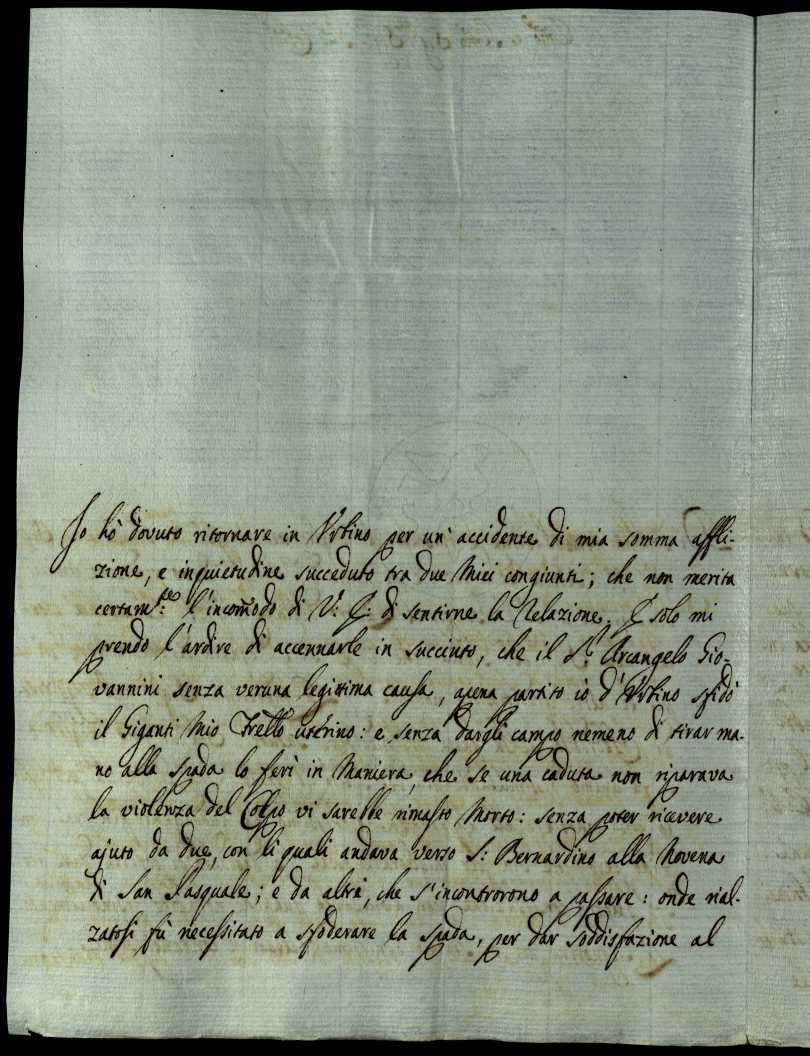 Io hò dovuto ritornare in Vrbino per un' accidente di mia somma affli-
zione, e inquietudine succeduto tra due Miei congiunti; che non merita
certam.te l'incom̃odo di V: E: di sentirne la Relazione. E solo mi
prendo l'ardire di accennarle in succinto, che il S.r Arcangelo Gio-
vannini senza veruna legittima causa, apena partito iò d'Vrbino sfidò
il Giganti Mio Frello uterino: e senza dargli campo nemeno di tirar ma-
no alla spada lo ferì in Maniera, che se una caduta non riparava
la violenza del Colpo vi sarebbe rimasto Morto: senza poter ricevere
ajuto da due, con li quali andava verso S: Bernardino alla Novena
di San Pasquale; e da altri, che s'incontrorono a passare: onde rial-
zatosi fù necessitato a sfoderare la spada, per dar soddisfazione al